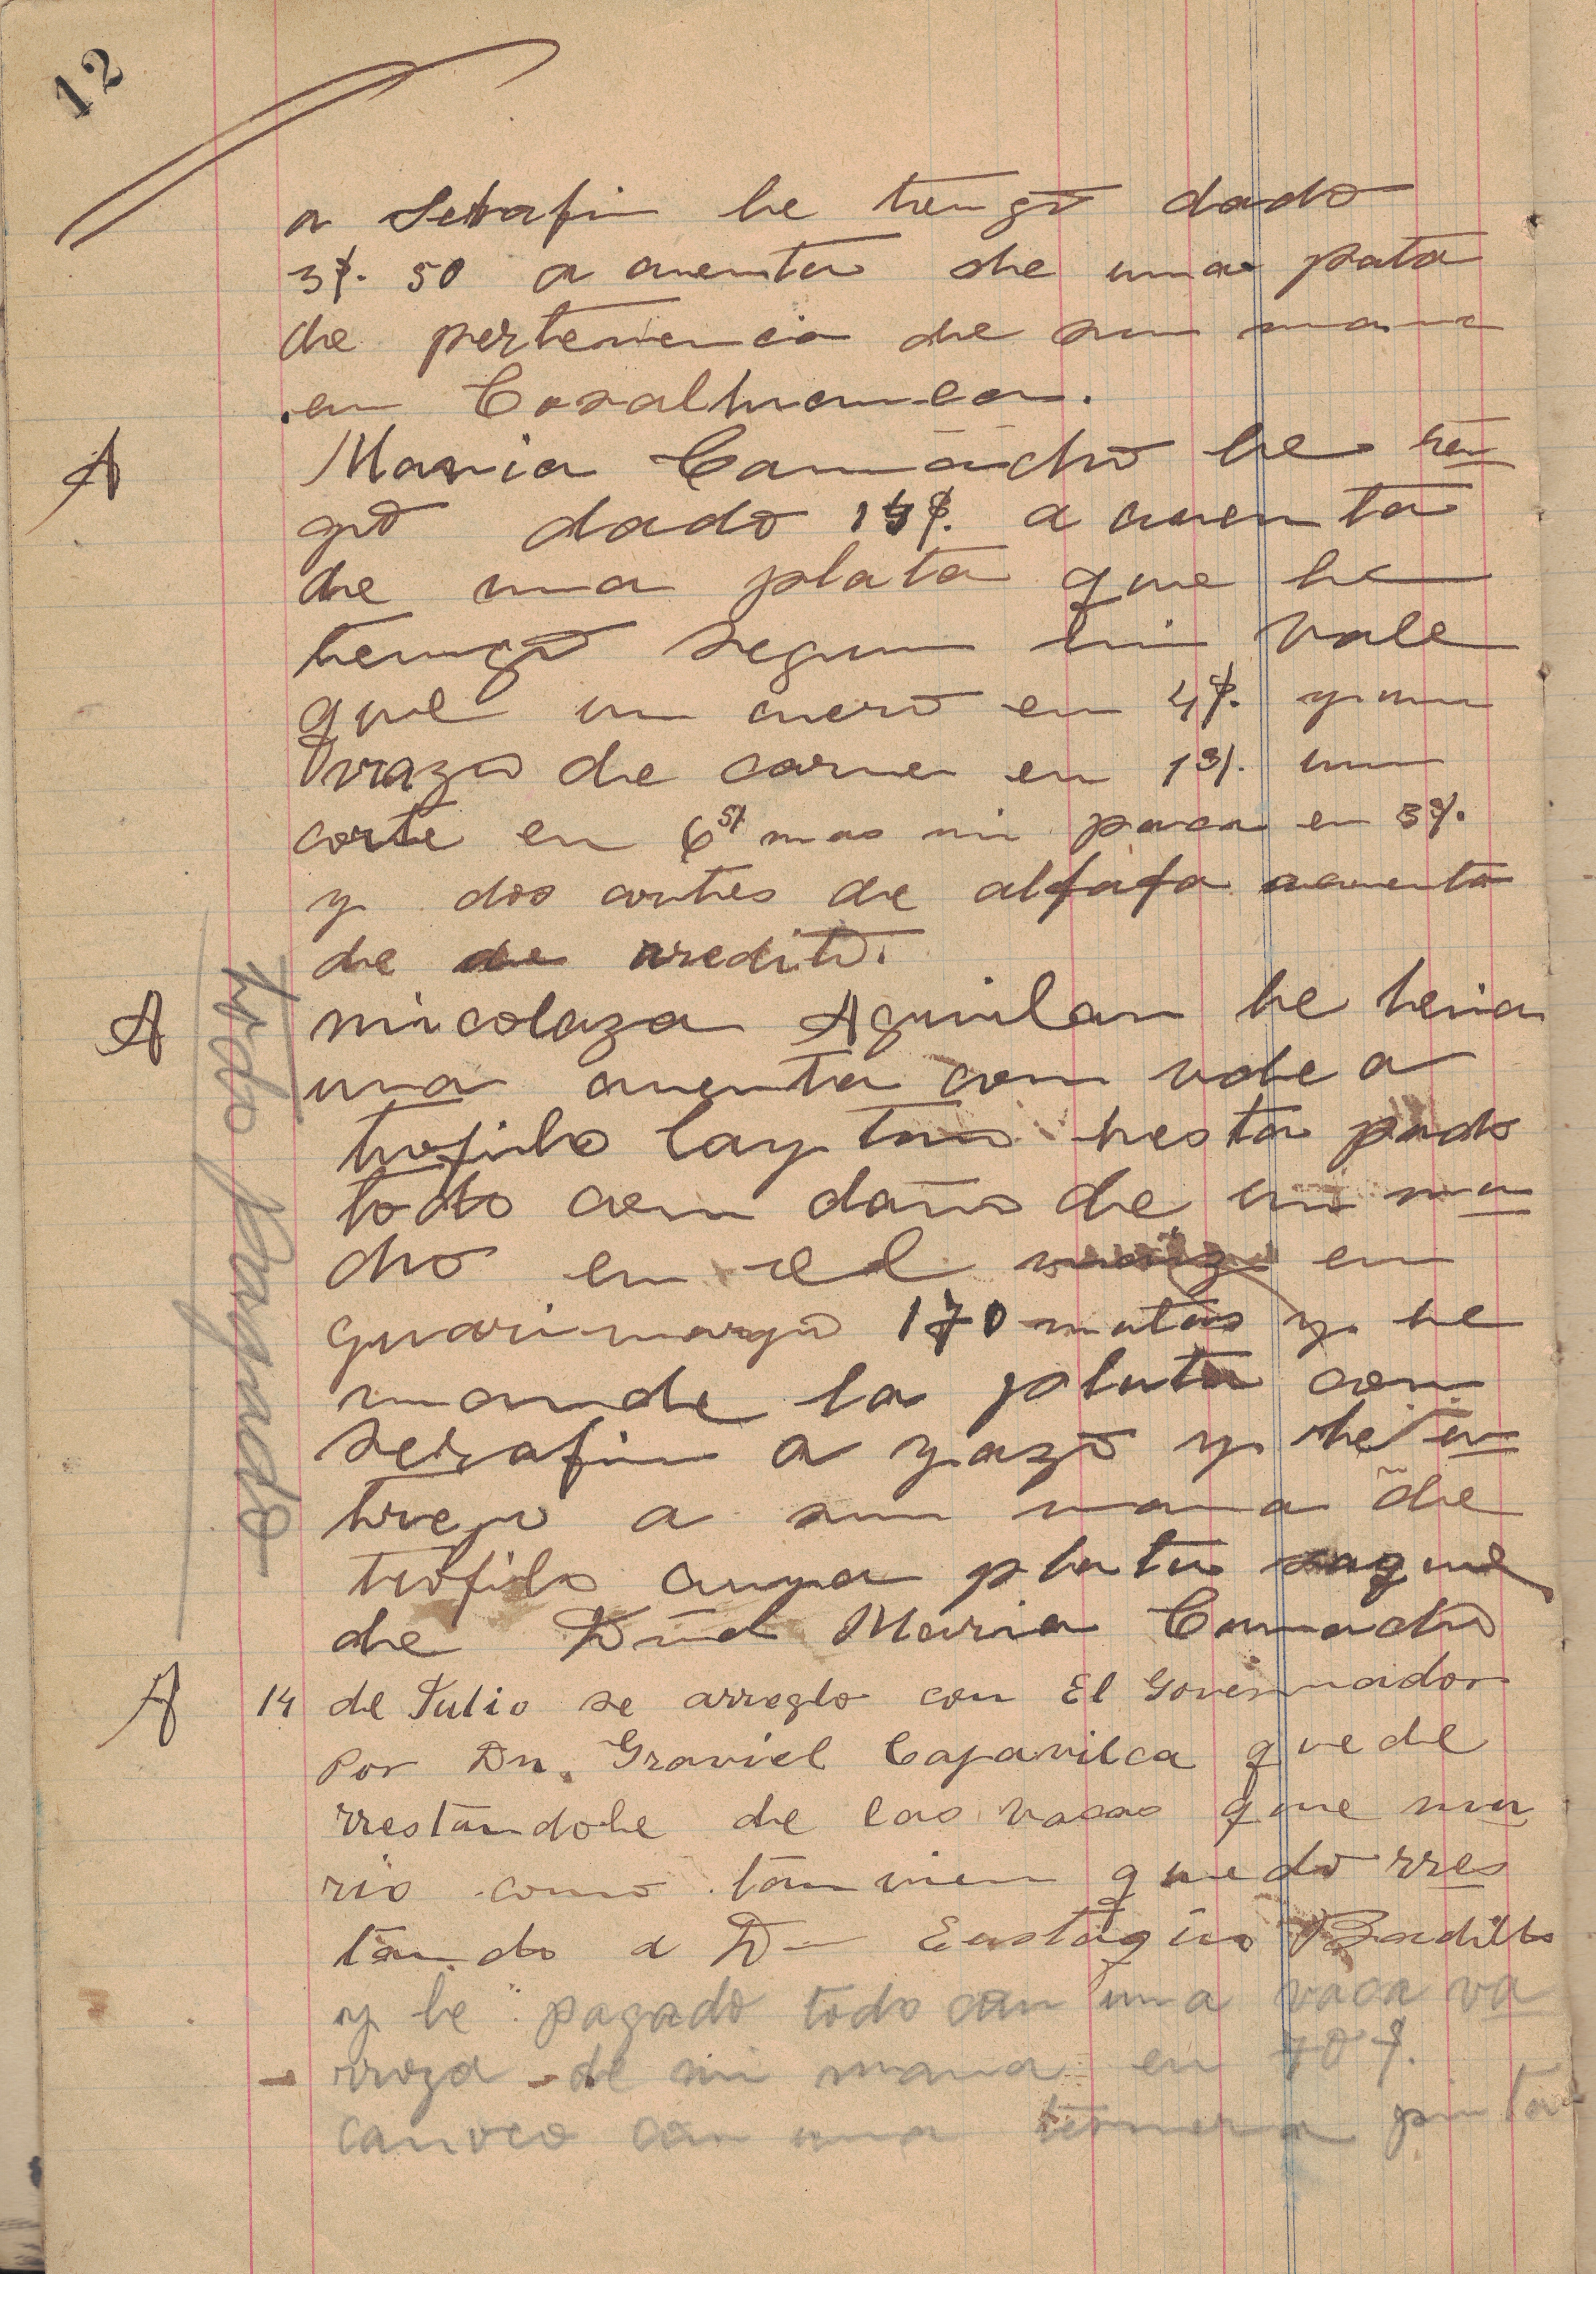 12
a Serafin he tengo dado
3$. 50 a cuenta de una pata
de pertenencia de su mama
en Cosalhuanca.
A Maria Camacho he ten
go dado 14$. a cuenta
de una plata que he
tengo segun mi vale
que un cuero en 4$. y un
vrazo de carne en 1$. un
corte en 6$ mas mi paca en 3$.
y dos cortes de alfafa acuenta
de de rredito.
A nicolaza Aguilar he tenia
una cuenta con vale a
teofilo Laytan hesta pado
todo con daño de un ma
cho en el maiz en
guarimargo 170 matas y he
mande la plata con
serafin a yazo y he en
trego a su mama de
teofilo cuya plata saque
de Dnã Maria Camacho
todo pagado
A 14 de Julio se arreglo con El Governador
Por Dn. Graviel Capavilca quede
rrestandole de las vacas que mu
rio como tamvien quedo rres
tando a Dn Eustaqio Badillo
y he pagado todo con una vaca va
rroza de mi mama en 70$.
canoco con una ternera pinta